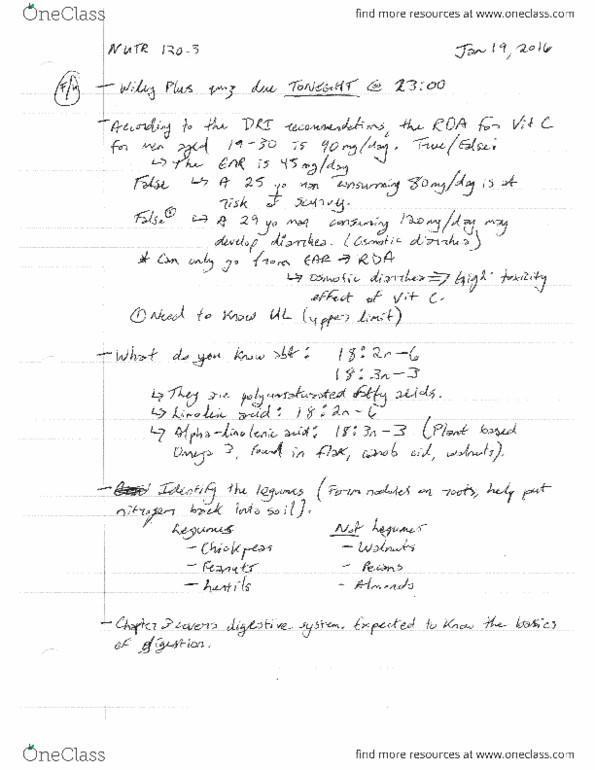 OneClass
find more resources at www.oneclass.com
NUTR 120-3 Jan 19, 2016
F/U - Wiley Plus quiz due TONIGHT @ 23:00
- According to the DRI recommendations, the RDA for Vit C
for men aged 19-30 is 90mg/day. True/False:
↳ The EAR is 45mg/day
False ↳ A 25 yo man consuming 80mg/day is at
risk of scurvy.
False① ↳ A 29 yo man consuming 120mg/day may
develop diarrhea. (Osmotic diarrhea)
* Can only go from EAR → RDA
↳ Osmotic diarrhea ⇒ high toxicity
effect of Vit C.
① Need to know UL (upper limit)
- What do you know abt: 18:2n-6
18:3n-3
↳ They are polyunsaturated fatty acids.
↳ Linoleic acid: 18:2n-6
↳ Alpha-linolenic acid: 18:3n-3 (Plant based
Omega 3, found in flax, oil, walnuts).
- Identify the legumes (Form nodules on roots, help put
nitrogen back into soil).
Legumes Not Legumes
- Chickpeas - Walnuts
- Peanuts - Pecans
- Lentils - Almonds
- Chapter 3 covers digestive system. Expected to know the basics
of digestion.
OneClass
find more resources at www.oneclass.com